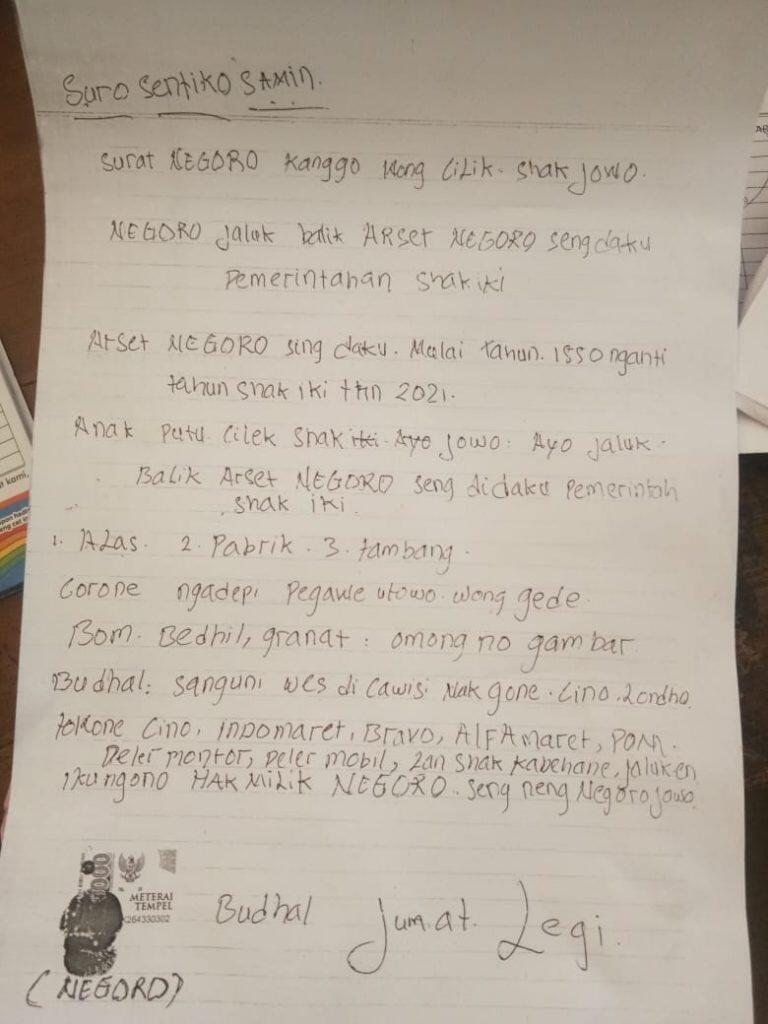 Suro Sentiko SAMin.
Surat NEGORO Kanggo Wong Cilik. Shak jowo.
NEGORO jaluk balik ARset NEGORO seng daku
Pemerintahan Shak iki
Arset NEGORO sing daku. Mulai tahun. 1550 nganti
tahun shak iki thn 2021.
Anak Putu Cilek Shak iki Ayo jowo: Ayo jaluk.
Balik Arset NEGORO seng didaku Pemerintah
shak iki.
1. ALas. 2. Pabrik. 3. tambang.
Corone ngadepi Pegawe utowo. wong gede.
Bom. Bedhil, granat: omong no gambar
Budhal: sanguni wes di Cawisi Nak gone. Cino. Londho.
tokone Cino, inpomaret, Bravo, ALFAmaret, POM.
Deler montor, Deler mobil, Lan Shak Kabehane, jaluken
iku ngono HAK MiLik NEGORO. seng neng Negoro jowo.
000
METERAI
TEMPEL
264330302
Budhal Jumat. Legi.
(NEGORO)